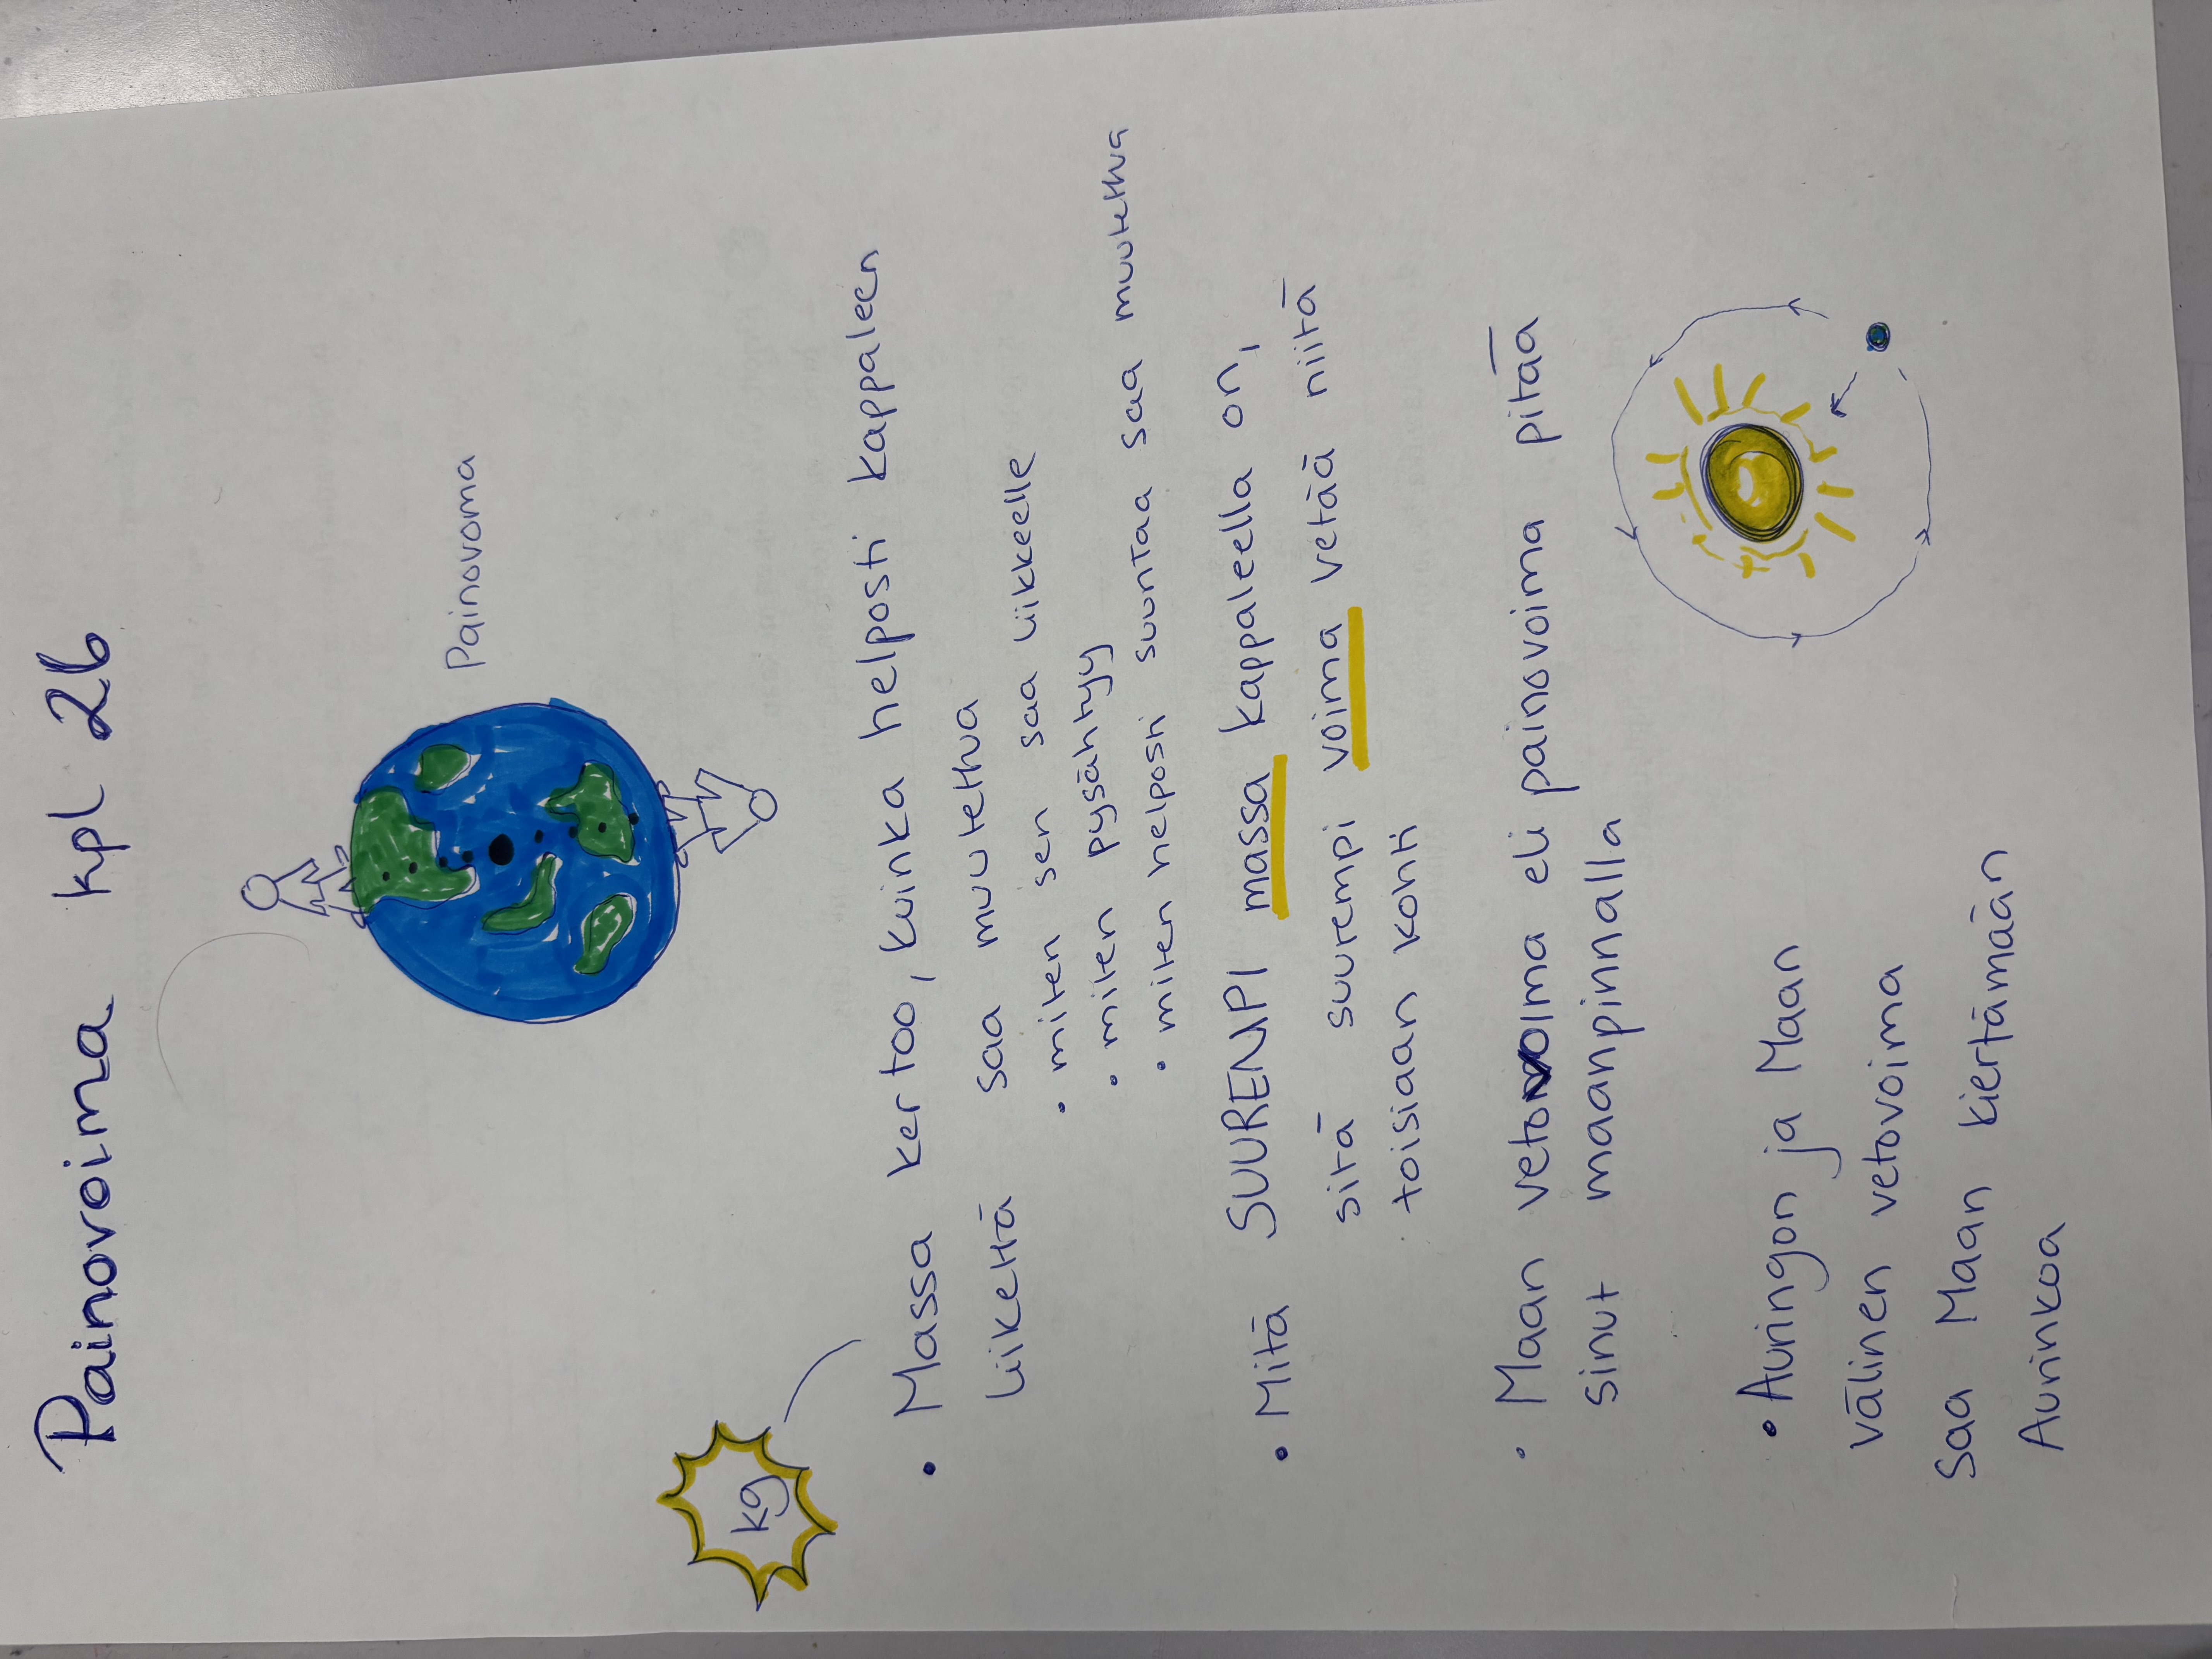 Painovoima kpl 26
Painovoma
kg
• Massa kertoo, kuinka helposti kappaleen
liikettä saa muutettua
• miten sen saa liikkeelle
• miten pysähtyy
• miten helposti suuntaa saa muutettua
• Mitä SUUREMPI massa kappaleella on,
sitä suurempi voima vetää niitä
toisiaan kohti
• Maan vetovoima eli painovoima pitää
sinut maanpinnalla
• Auringon ja Maan
välinen vetovoima
saa Maan kiertämään
Aurinkoa